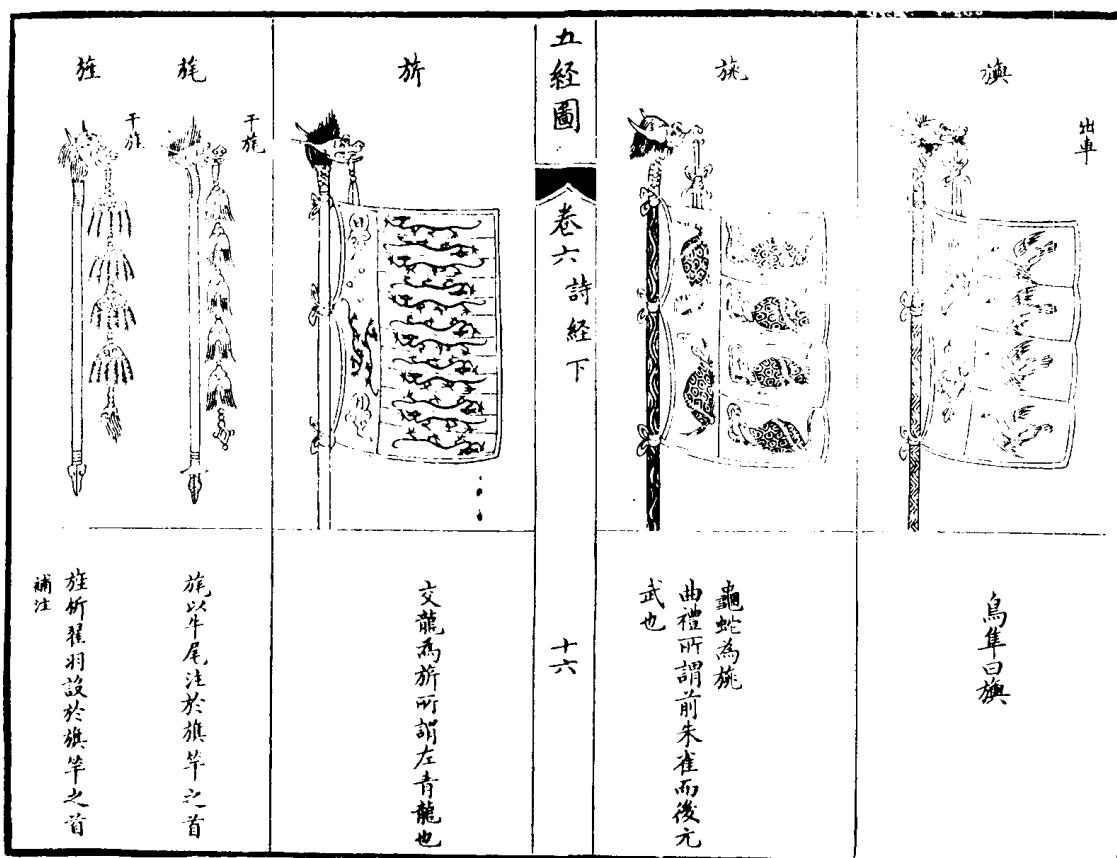 出車
旟
鳥隼曰旟
旐
龜蛇為旐
曲禮所謂前朱雀而後元
武也
五経圖
卷六
詩経下
十六
旂
交龍為旂所謂左青龍也
干旄
旄
旄以牛尾注於旗竿之首
干旄
旌
旌析翟羽設於旗竿之首
補注